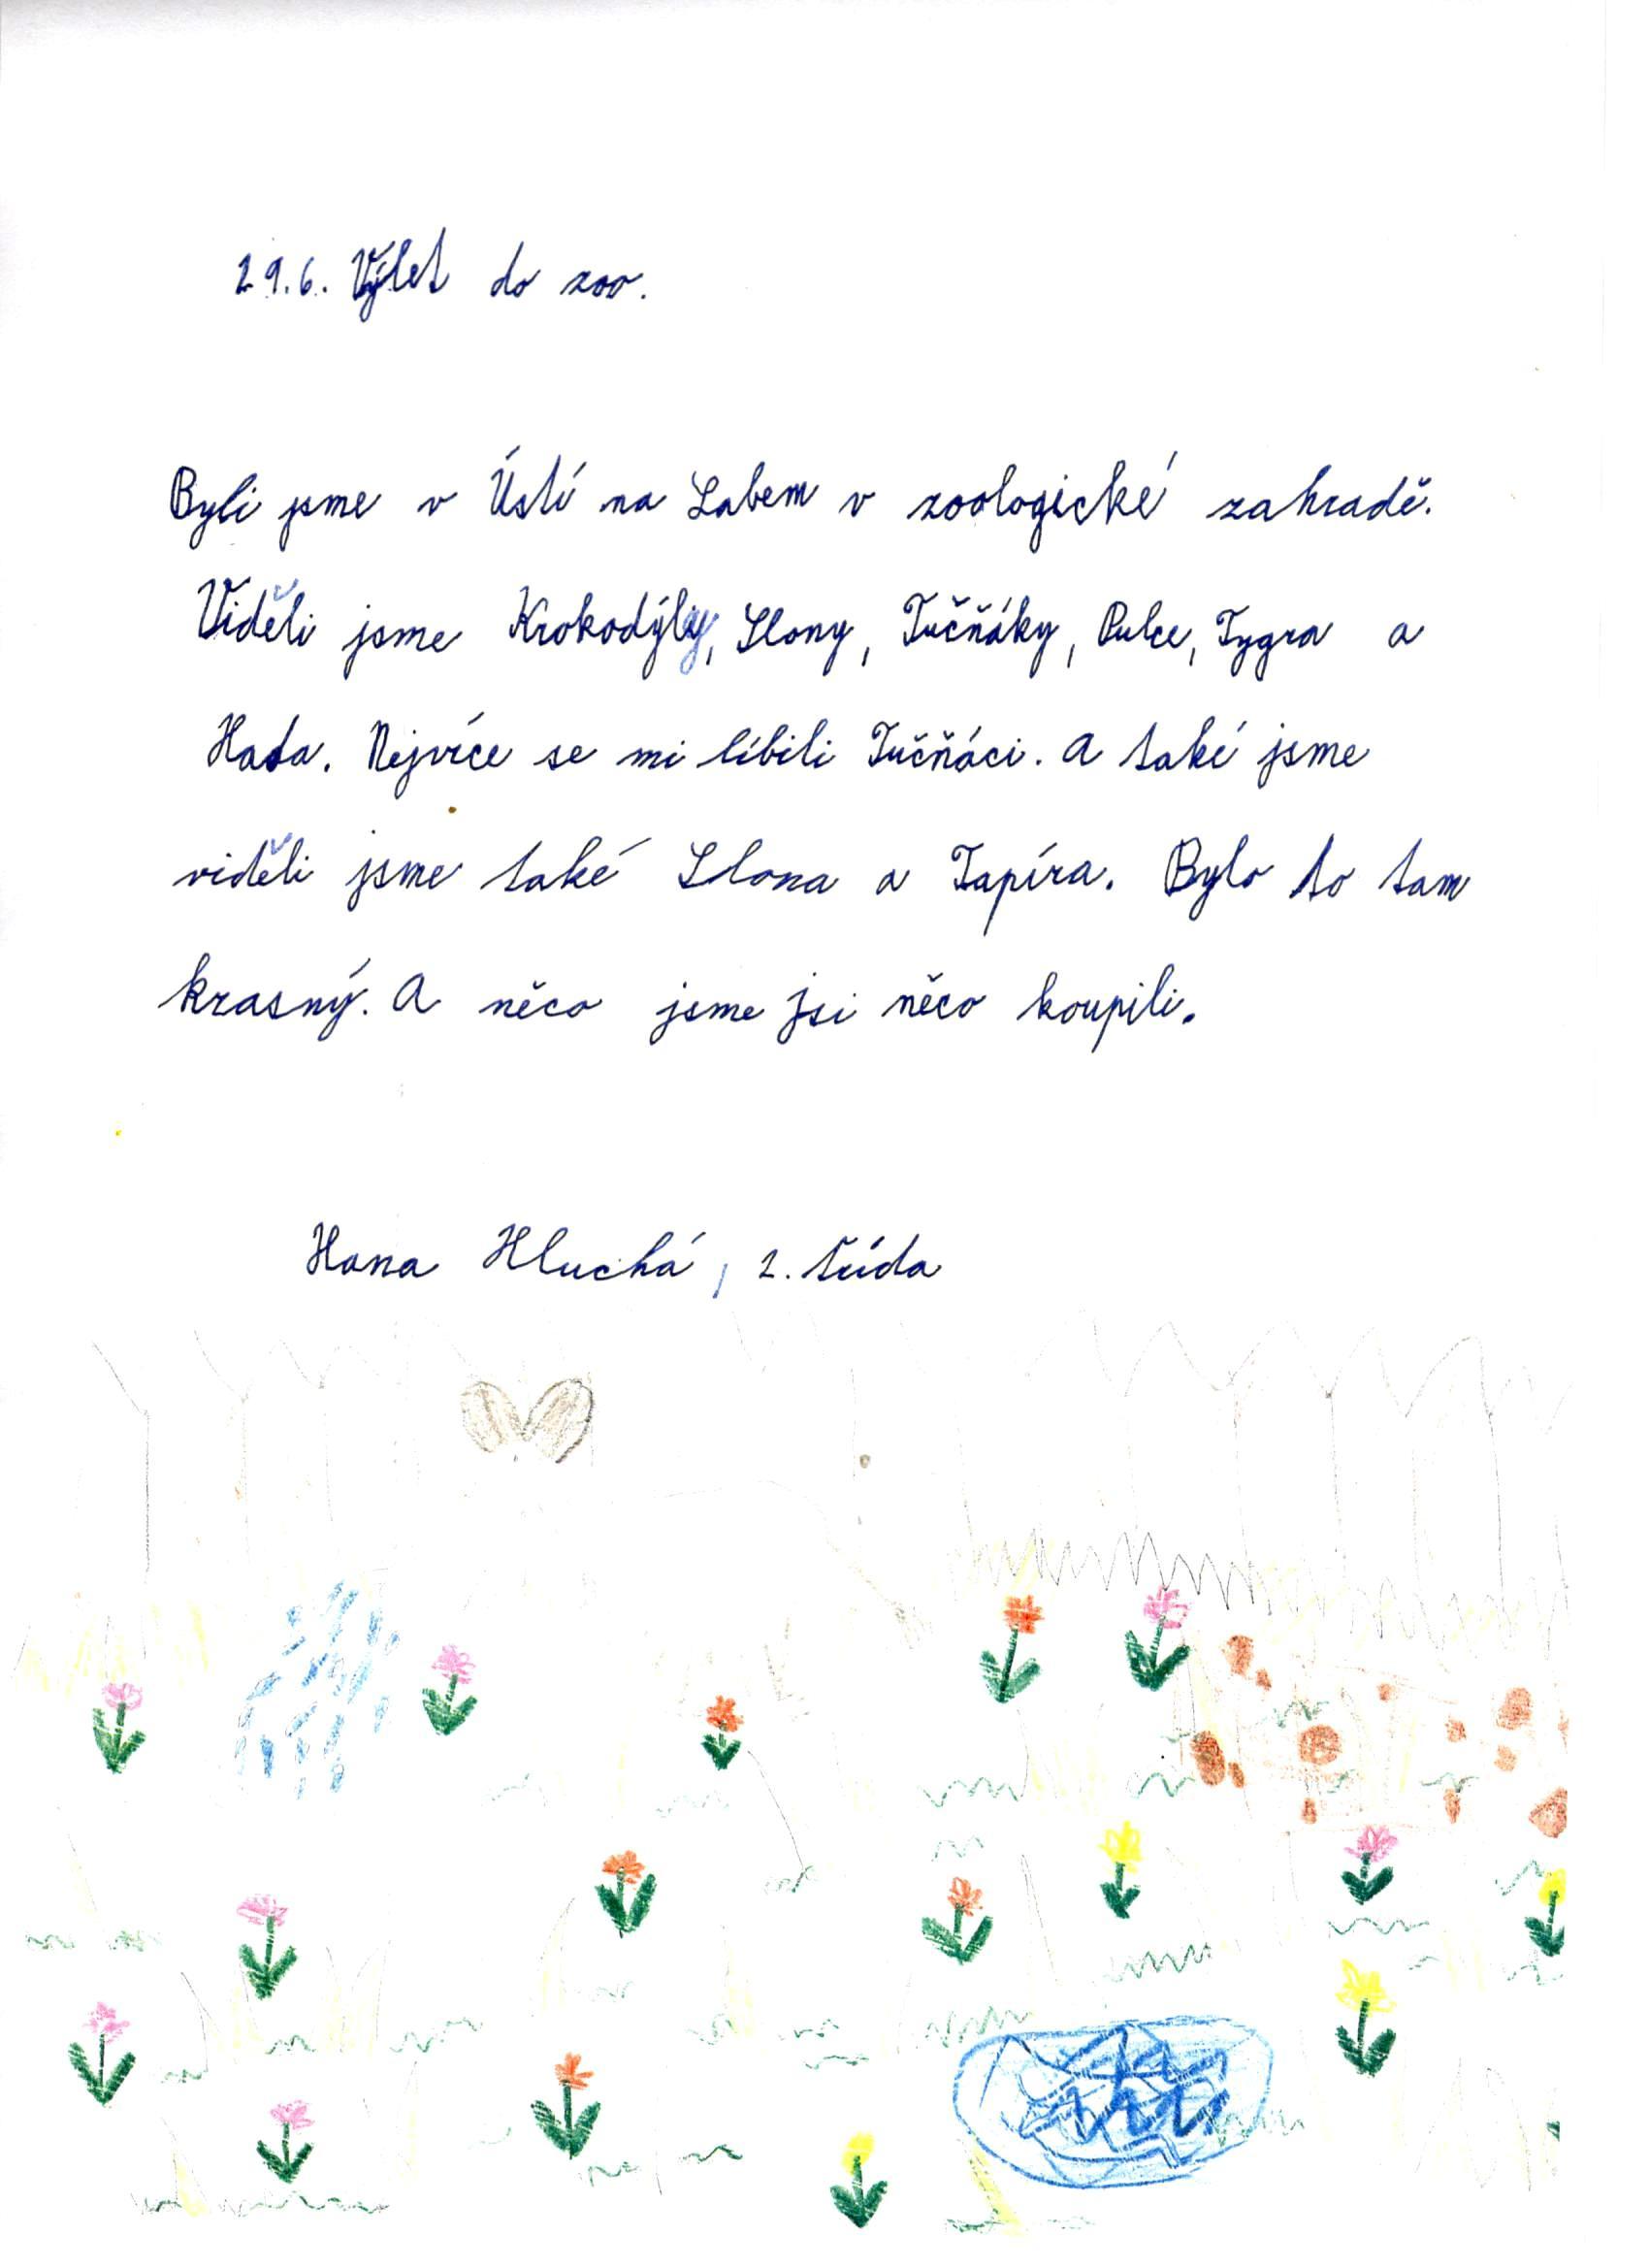 29.6. Výlet do zoo.
Byli jsme v Ústí na Labem v zoologické zahradě.
Viděli jsme Krokodýly, Slony, Tučňáky, Pulce, Tygra a
Hada. Nejvíce se mi líbili Tučňáci. A také jsme
viděli jsme také Slona a Tapíra. Bylo to tam
krasný. A něco jsme jsi něco koupili.
Hana Hluchá, 2. třída